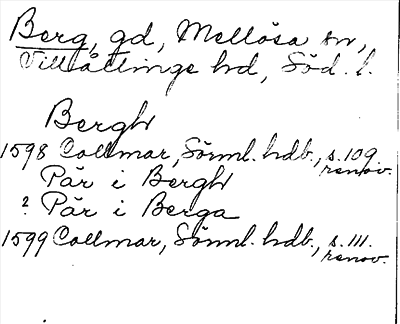 Berg, gd, Mellösa sn,
Villåttinge hd, Söd. l.
Bergh
1598 Collmar, Sörml. hdb., s. 109
renov.
Pär i Bergh
? Pär i Berga
1599 Collmar, Sörml. hdb., s. 111.
renov.